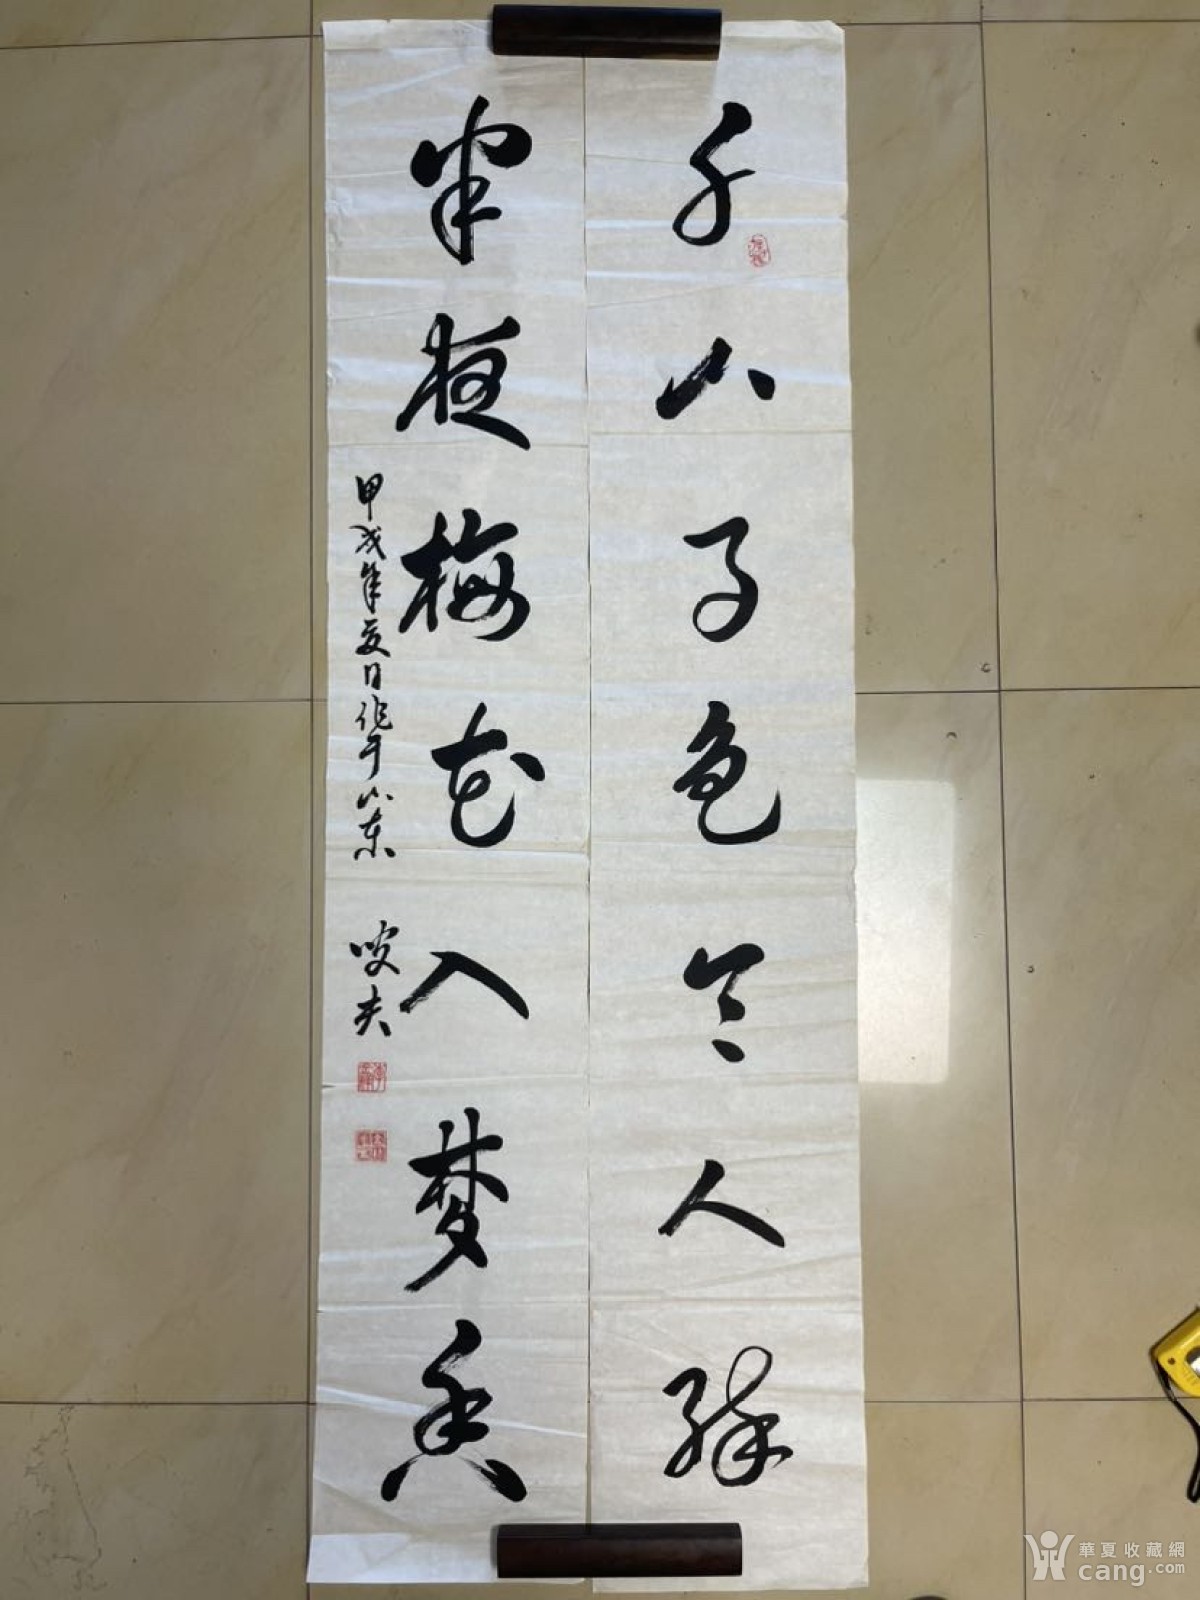 千山月色令人醉
半夜梅花入梦香
甲戌年夏日作于山东
夫
華夏收藏網
cang.com